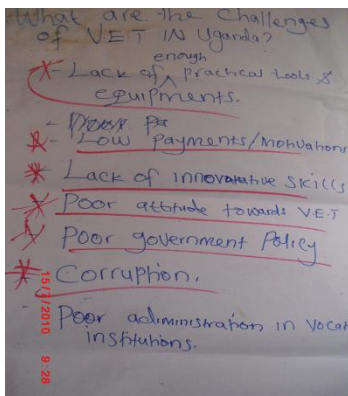 What are the Challenges
of V.E.T IN Uganda?
enough
- Lack of ^ practical tools &
equipments.
-
- Low payments/motivations
Lack of innovative skills
Poor attitude towards V.E.T
Poor government Policy
Corruption.
- Poor administration in Vocat
institutions.
15/3/2010 9:28